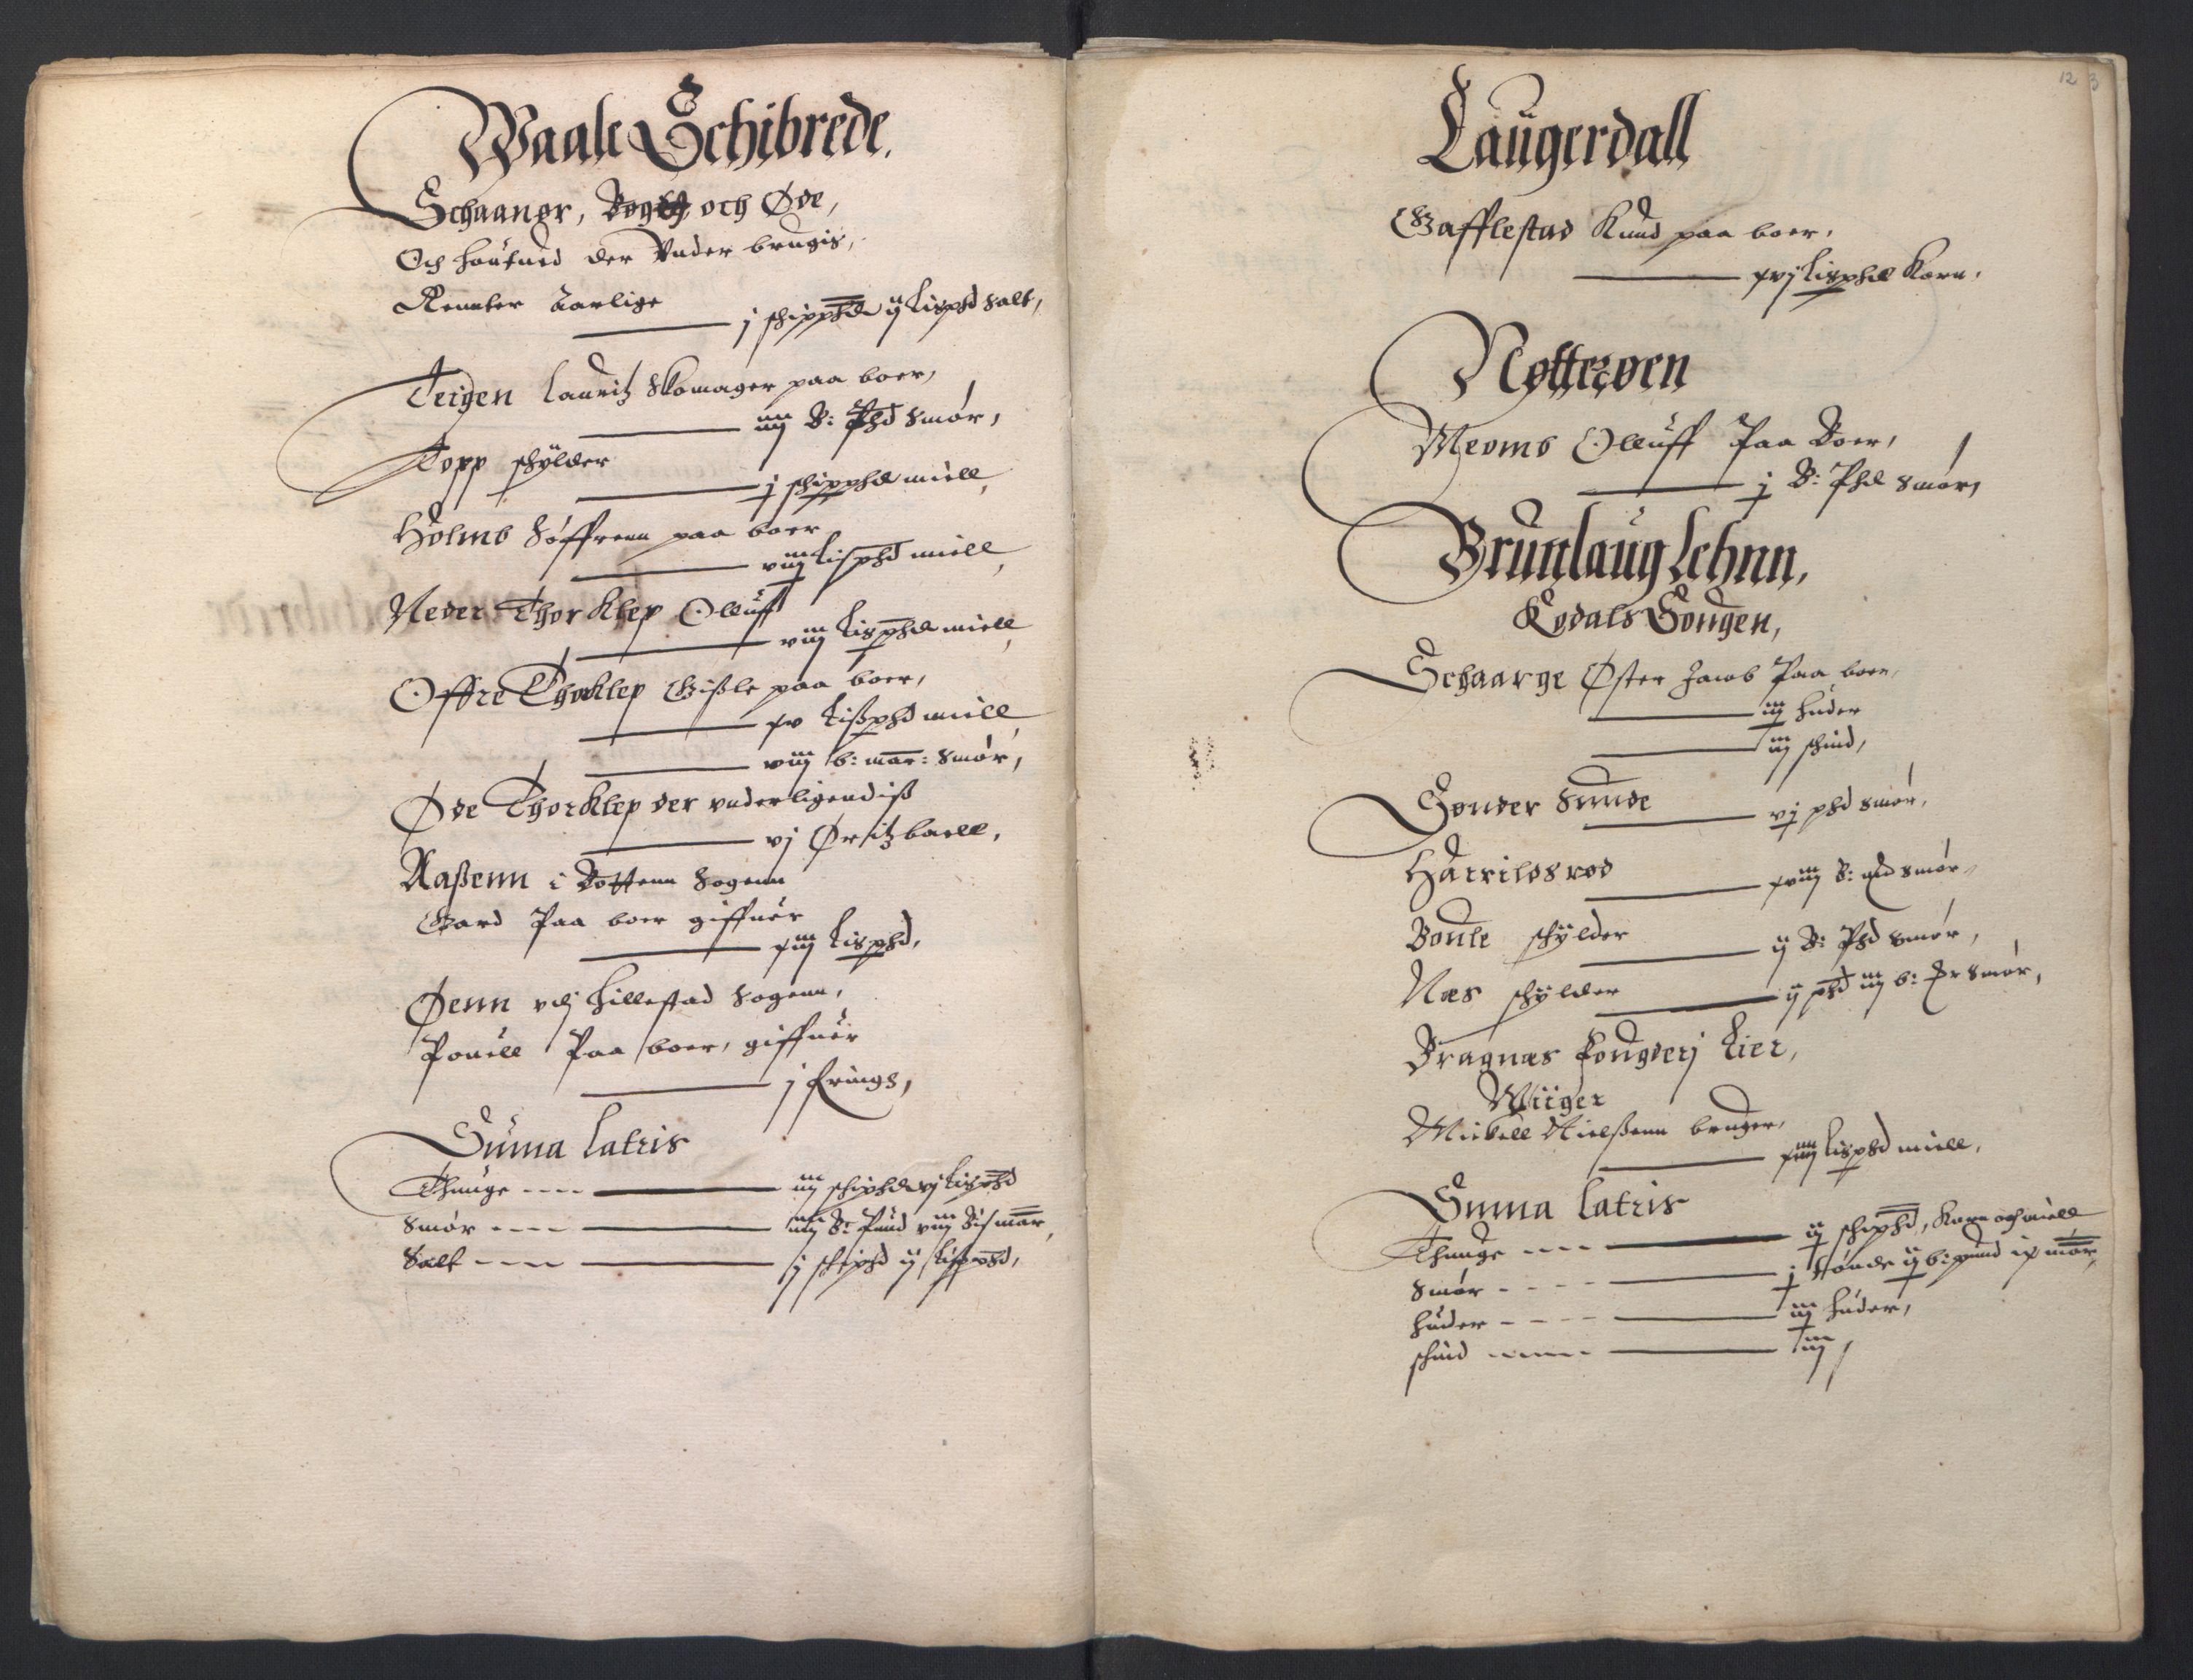 Waale Schibrede.
Schaanør, och Øde,
Och haufued der Vnder brugis,
Rennter Aarlige
j schippd ij Lispd salt,
Teigen Lauritz Skomager paa boer,
iiij B: Pd smør,
Topp schylder
j schippd miell,
Holmb Søffrenn paa boer
viij Lispd miell,
Neder Thorklep Olluff
viij Lispd miell,
Offre Thorklep Gisle paa boer,
xv Lispd miell
viij b: mar: smør,
Øde Thorklep der vnderligendis
vj Øritz baell,
Aaßenn i Botten sogenn
Gard Paa boer giffuer
xiij Lispd,
Øenn vdj Hillestad sogenn,
Pouell Paa boer, giffuer
j krings,
Suma Latris
Thunge ---- iiij schipd vj Lispd
Smør ---- iiij B: Pund viij Bismar,
Salt ---- j schipd ij Lispd,
12 3
Laugerdall
Gafflestad Knud paa boer,
xvj Lispd Korn,
Nøtterøen
Meomb Olluff Paa Boer,
j B: Pd smør,
Brunlaug Lehnn,
Kodals Songen,
Schaarge Øster Jacob Paa boer,
iij huder
iij schind,
Sønder Sunde vj pd smør,
Harrildsrod xviij B: smør
Bonle schylder ij B: Pd smør,
Næs schylder ij pd iiij b: smør,
Bragnæs Fougderj Lier,
Wiiger
Mickell Nielßenn bruger,
xiiij Lispd miell,
Suma Latris
Thunge ---- ij schipd, Korn och miell
Smør ---- j tønde ij b: pund ix mar,
huder ---- iij huder,
schind ---- iij,